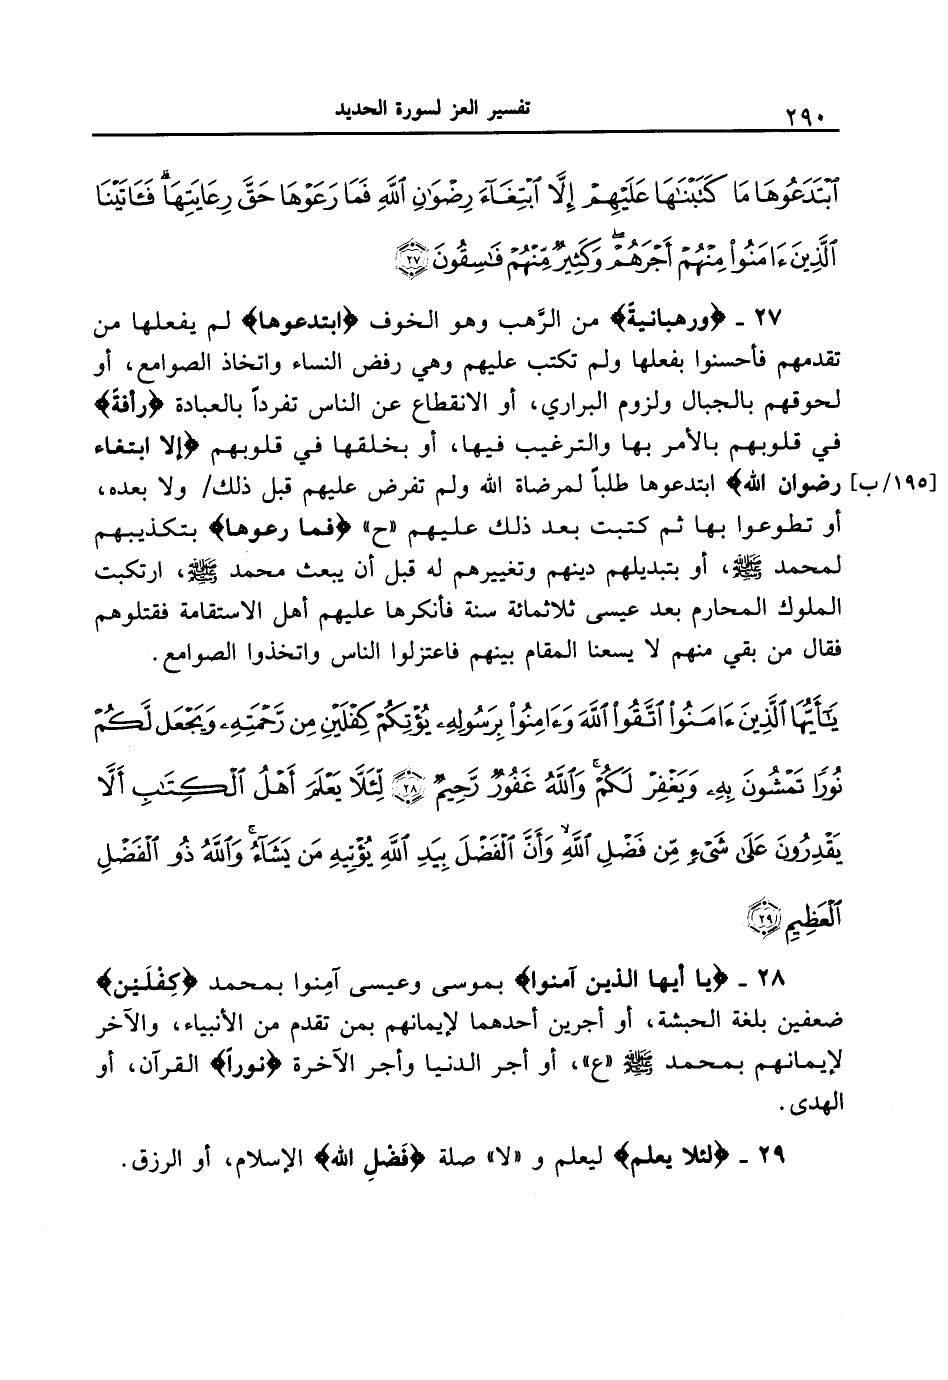 ٢٩٠ تفسير العز لسورة الحديد
ٱبۡتَدَعُوهَا مَا كَتَبۡنَٰهَا عَلَيۡهِمۡ إِلَّا ٱبۡتِغَآءَ رِضۡوَٰنِ ٱللَّهِ فَمَا رَعَوۡهَا حَقَّ رِعَايَتِهَاۖ فَـَٔاتَيۡنَا
ٱلَّذِينَ ءَامَنُواْ مِنۡهُمۡ أَجۡرَهُمۡۖ وَكَثِيرٌ مِّنۡهُمۡ فَٰسِقُونَ ٢٧
٢٧ ـ ﴿ورهبانيةً﴾ من الرَّهب وهو الخوف ﴿ابتدعوها﴾ لم يفعلها من
تقدمهم فأحسنوا بفعلها ولم تكتب عليهم وهي رفض النساء واتخاذ الصوامع، أو
لحوقهم بالجبال ولزوم البراري، أو الانقطاع عن الناس تفرداً بالعبادة ﴿رأفةً﴾
في قلوبهم بالأمر بها والترغيب فيها، أو بخلقها في قلوبهم ﴿إلا ابتغاء
[١٩٥/ب] رضوان الله﴾ ابتدعوها طلباً لمرضاة الله ولم تفرض عليهم قبل ذلك/ ولا بعده،
أو تطوعوا بها ثم كتبت بعد ذلك عليهم «ح» ﴿فما رعوها﴾ بتكذيبهم
لمحمد ﷺ، أو بتبديلهم دينهم وتغييرهم له قبل أن يبعث محمد ﷺ، ارتكبت
الملوك المحارم بعد عيسى ثلاثمائة سنة فأنكرها عليهم أهل الاستقامة فقتلوهم
فقال من بقي منهم لا يسعنا المقام بينهم فاعتزلوا الناس واتخذوا الصوامع.
يَٰٓأَيُّهَا ٱلَّذِينَ ءَامَنُواْ ٱتَّقُواْ ٱللَّهَ وَءَامِنُواْ بِرَسُولِهِۦ يُؤۡتِكُمۡ كِفۡلَيۡنِ مِن رَّحۡمَتِهِۦ وَيَجۡعَل لَّكُمۡ
نُورًا تَمۡشُونَ بِهِۦ وَيَغۡفِرۡ لَكُمۡۚ وَٱللَّهُ غَفُورٌ رَّحِيمٌ ٢٨ لِّئَلَّا يَعۡلَمَ أَهۡلُ ٱلۡكِتَٰبِ أَلَّا
يَقۡدِرُونَ عَلَىٰ شَىۡءٍ مِّن فَضۡلِ ٱللَّهِۙ وَأَنَّ ٱلۡفَضۡلَ بِيَدِ ٱللَّهِ يُؤۡتِيهِ مَن يَشَآءُۚ وَٱللَّهُ ذُو ٱلۡفَضۡلِ
ٱلۡعَظِيمِ ٢٩
٢٨ ـ ﴿يا أيها الذين آمنوا﴾ بموسى وعيسى آمِنوا بمحمد ﴿كِفْلَيْن﴾
ضعفين بلغة الحبشة، أو أجرين أحدهما لإيمانهم بمن تقدم من الأنبياء، والآخر
لإيمانهم بمحمد ﷺ «ع»، أو أجر الدنيا وأجر الآخرة ﴿نوراً﴾ القرآن، أو
الهدى.
٢٩ ـ ﴿لئلا يعلم﴾ ليعلم و «لا» صلة ﴿فَضْلِ الله﴾ الإسلام، أو الرزق.